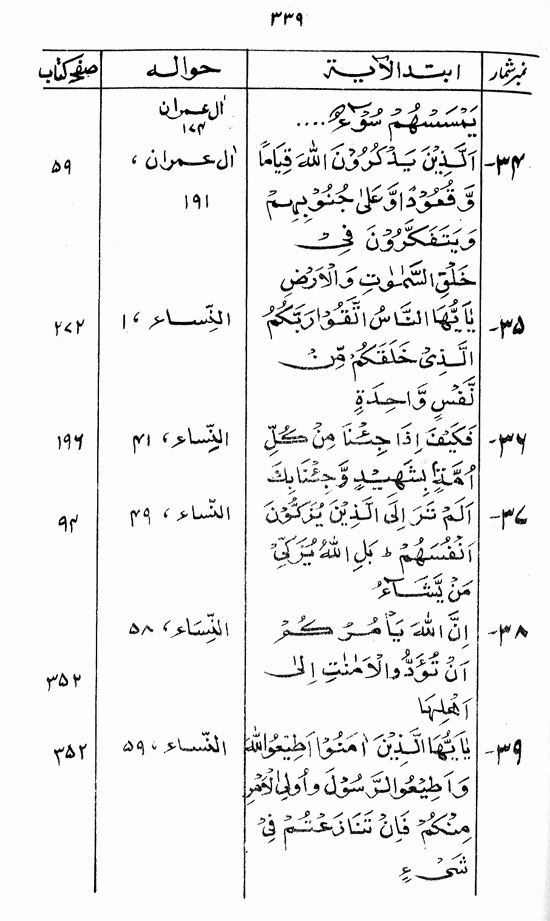 ۳۳۹
نمبر شمار ابتد الآیۃ حوالہ صفحہ کتاب
یَمْسَسْهُمْ سُوْٓءٌ .... اٰل عمران
۱۷۴
۳۴- اَلَّذِیْنَ یَذْكُرُوْنَ اللّٰهَ قِیَامًا اٰل عمران ، ۵۹
وَّ قُعُوْدًا وَّ عَلٰی جُنُوْبِهِمْ ۱۹۱
وَیَتَفَكَّرُوْنَ فِیْ
خَلْقِ السَّمٰوٰتِ وَالْاَرْضِ
۳۵- یٰاَیُّهَا النَّاسُ اتَّقُوْا رَبَّكُمُ النِّساء ، ۱ ۲۷۲
الَّذِیْ خَلَقَكُمْ مِّنْ
نَّفْسٍ وَّاحِدَةٍ
۳۶- فَكَیْفَ اِذَا جِئْنَا مِنْ كُلِّ النِّساء ، ۴۱ ۱۹۶
اُمَّةٍۭ بِشَهِیْدٍ وَّجِئْنَا بِكَ
۳۷- اَلَمْ تَرَ اِلَی الَّذِیْنَ یُزَكُّوْنَ النِّساء ، ۴۹ ۹۴
اَنْفُسَهُمْ ط بَلِ اللّٰهُ یُزَكِّیْ
مَنْ یَّشَآءُ
۳۸- اِنَّ اللّٰهَ یَاْمُرُكُمْ النِّسَاء ، ۵۸
اَنْ تُؤَدُّوا الْاَمٰنٰتِ اِلٰی ۳۵۲
اَهْلِهَا
۳۹- یٰاَیُّهَا الَّذِیْنَ اٰمَنُوْا اَطِیْعُوا اللّٰهَ النِّساء ، ۵۹ ۳۵۲
وَاَطِیْعُوا الرَّسُوْلَ وَاُولِی الْاَمْرِ
مِنْكُمْ فَاِنْ تَنَازَعْتُمْ فِیْ
شَیْءٍ